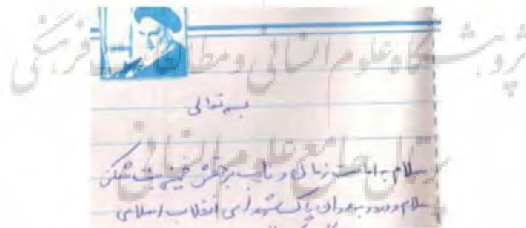 پژوهشگاه علوم انسانی و مطالعات فرهنگی
بسمه تعالی
پرتال جامع علوم انسانی
سلام به امامت زمان و نایب برحقش خمینی بت شکن
سلام و درود به روان پاک شهدای انقلاب اسلامی